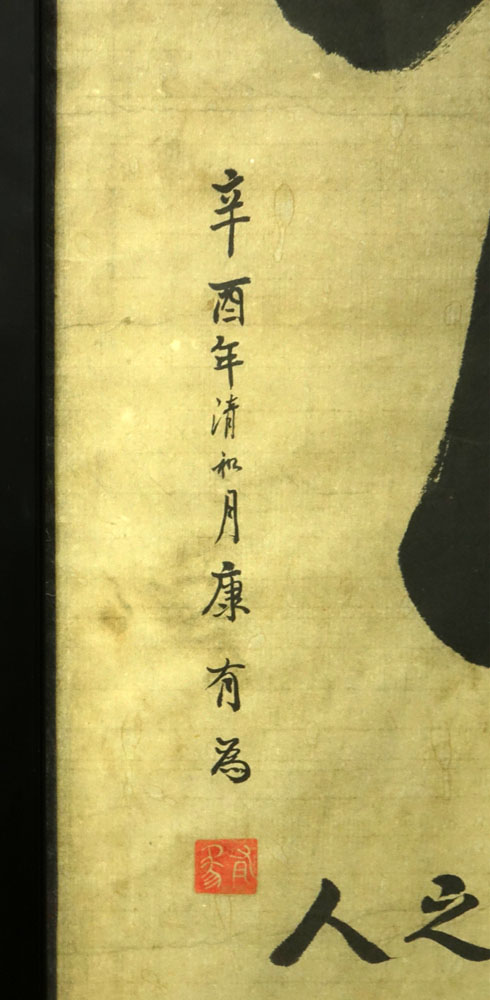 之人
辛酉年清和月康有為
有為